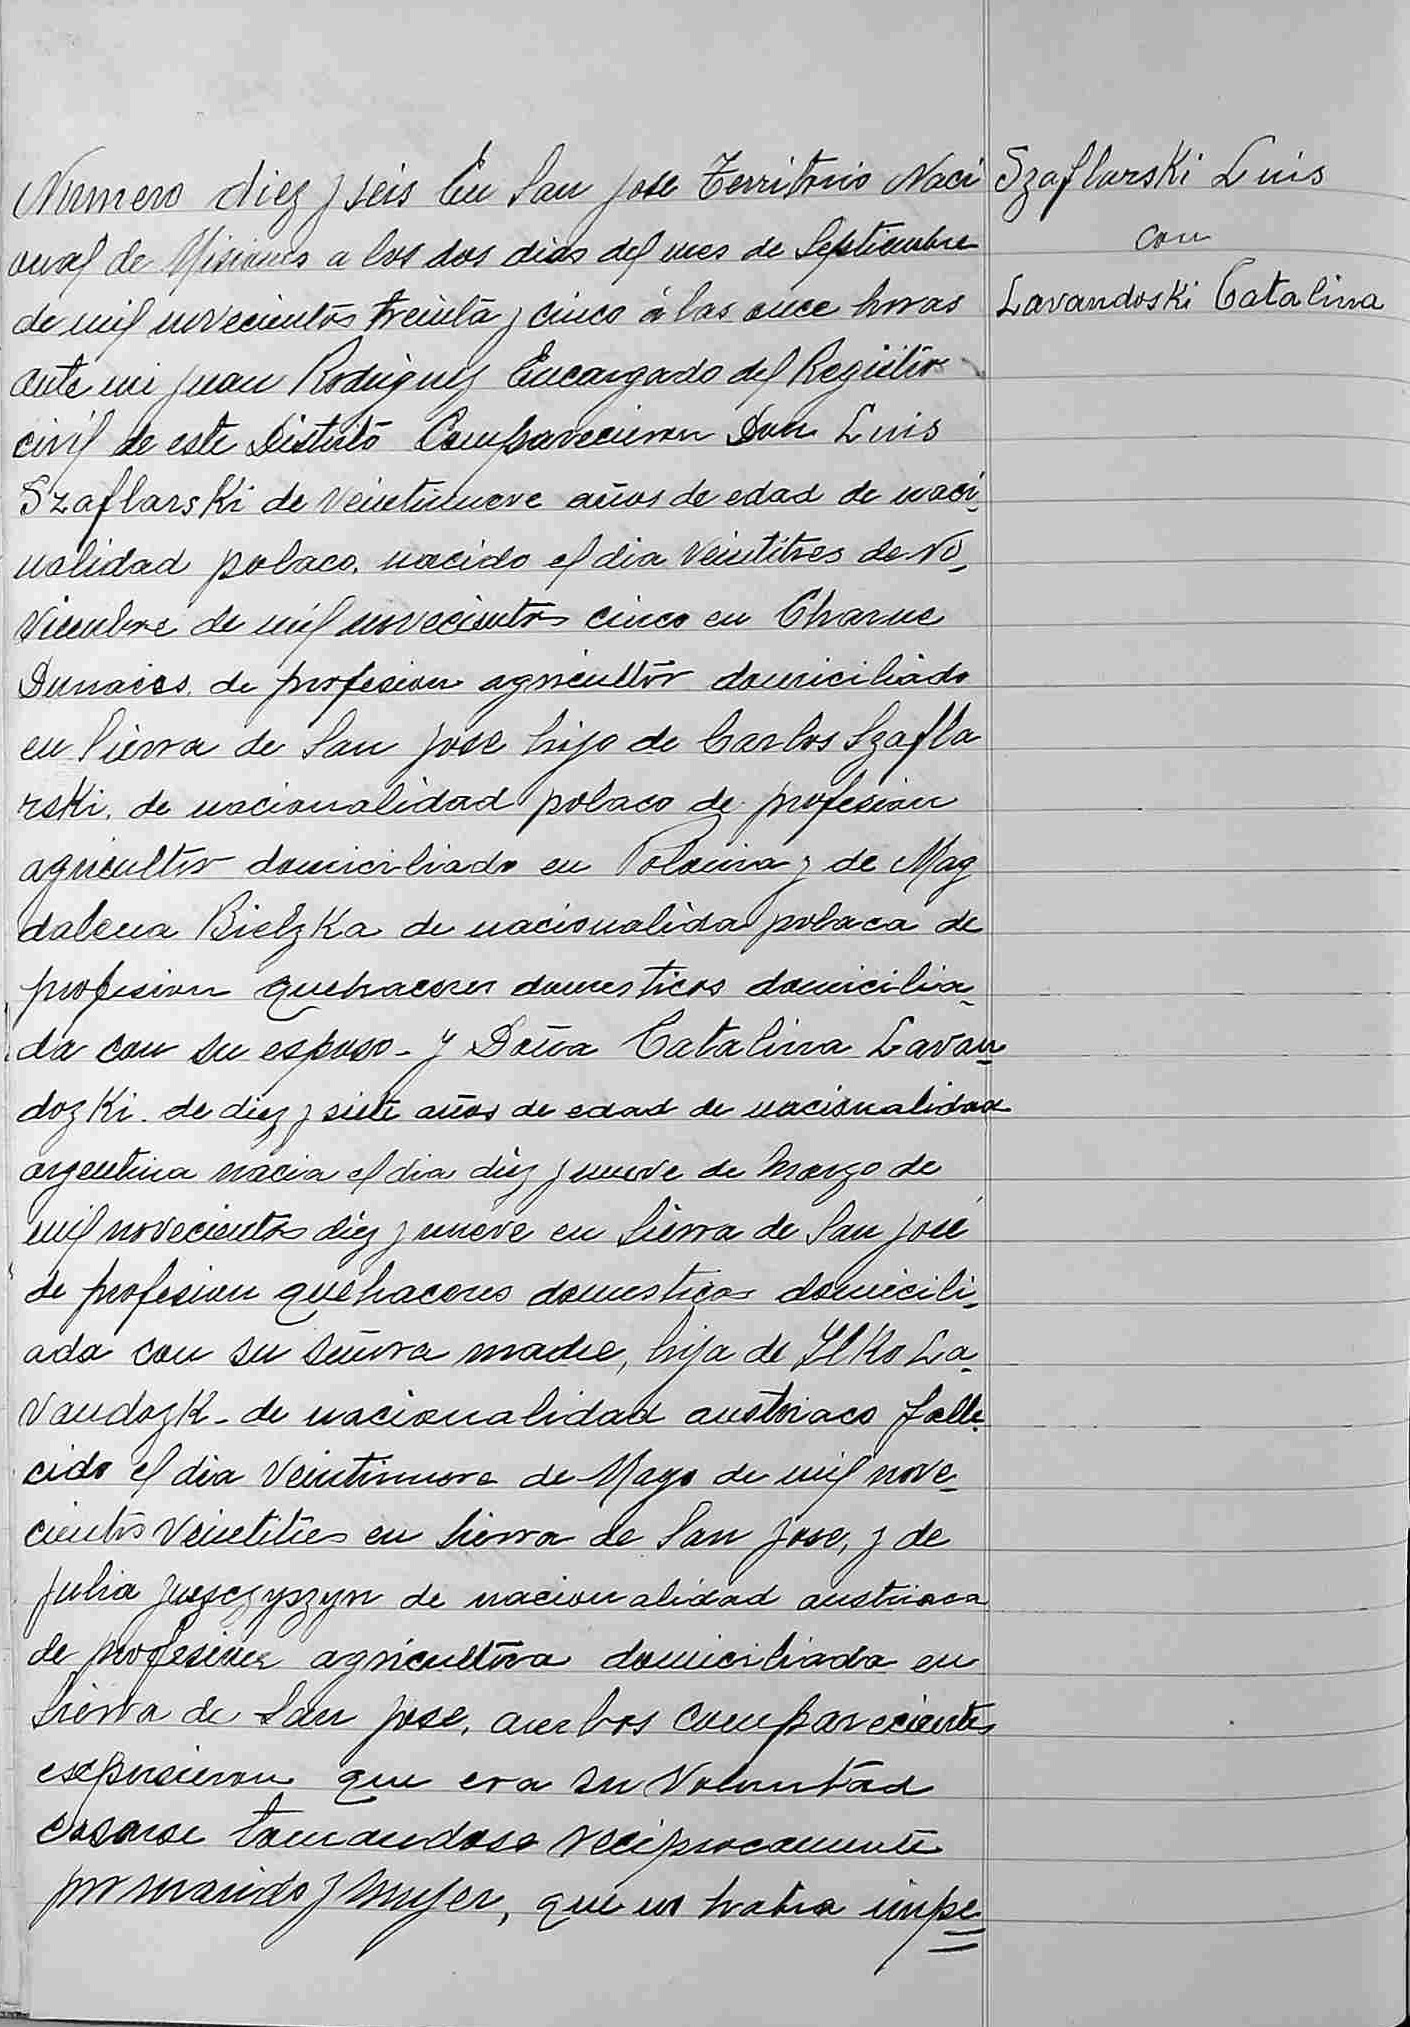 Numero diez y seis En San Jose Territorio Naci
onal de Misiones a los dos dias del mes de Septiembre
de mil novecientos treinta y cinco á las once horas
ante mi Juan Rodriguez Encargado del Registro
civil de este Distrito Comparecieron Don Luis
Szaflarski de veintinueve años de edad de naci-
nalidad polaco. nacido el dia veintitres de No-
viembre de mil novecientos cinco en Charne
Dunaies. de profesion agricultor domiciliado
en Sierra de San Jose hijo de Carlos Szafla
rski. de nacionalidad polaco de profesion
agricultor domiciliado en Polonia y de Mag
dalena Bielzka de nacionalida polaca de
profesion quehaceres domesticos domicilia-
da con su esposo - y Doña Catalina Lavan-
dozki. de diez y siete años de edad de nacionalidad
argentina nacia el dia diez y nueve de Marzo de
mil novecientos diez y nueve en Sierra de San José
de profesion quehaceres domesticos domicili-
ada con su señora madre, hija de Ilko La-
vandozk - de nacionalidad austriaco falle-
cido el dia veintinueve de Mayo de mil nove-
cientos veintitres en Sierra de San Jose, y de
Julia Juszczyszyn de nacionalidad austriaca
de profesion agricultora domiciliada en
Sierra de San Jose. ambos comparecientes
expusieron que era su voluntad
casarse tomandose reciprocamente
por marido y mujer, que no habia impe=
Szaflarski Luis
con
Lavandoski Catalina